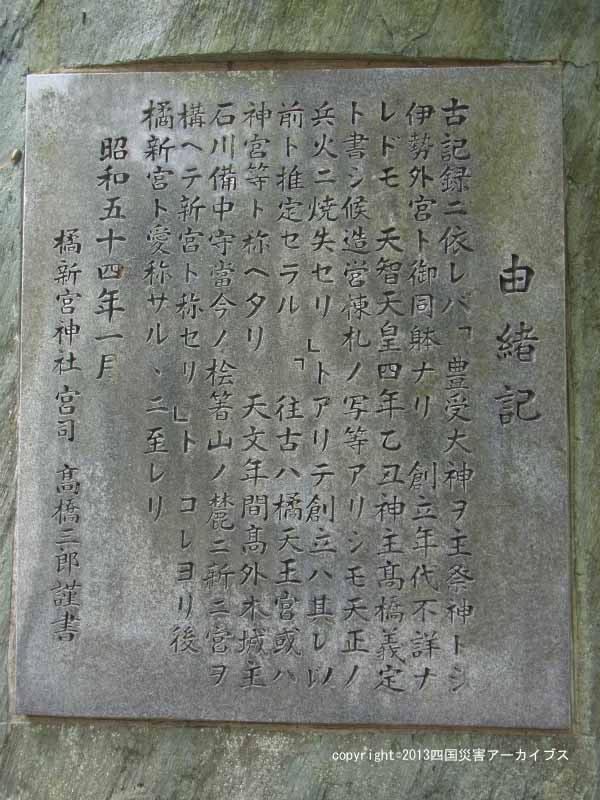 由緒記
古記録ニ依レバ「豊受大神ヲ主祭神トシ
伊勢外宮ト御同躰ナリ 創立年代不詳ナ
レドモ 天智天皇四年乙丑神主髙橋義定
ト書シ候造営棟札ノ写等アリシモ天正ノ
兵火ニ焼失セリ」トアリテ創立ハ其レ以
前ト推定セラル「 往古ハ橘天王宮或ハ
神宮等ト称ヘタリ 天文年間髙外木城主
石川備中守當今ノ桧箸山ノ麓ニ新ニ宮ヲ
構ヘテ新宮ト称セリ」ト コレヨリ後
橘新宮ト愛称サルヽニ至レリ
昭和五十四年一月
橘新宮神社 宮司 髙橋三郎謹書
copyright©2013四国災害アーカイブス